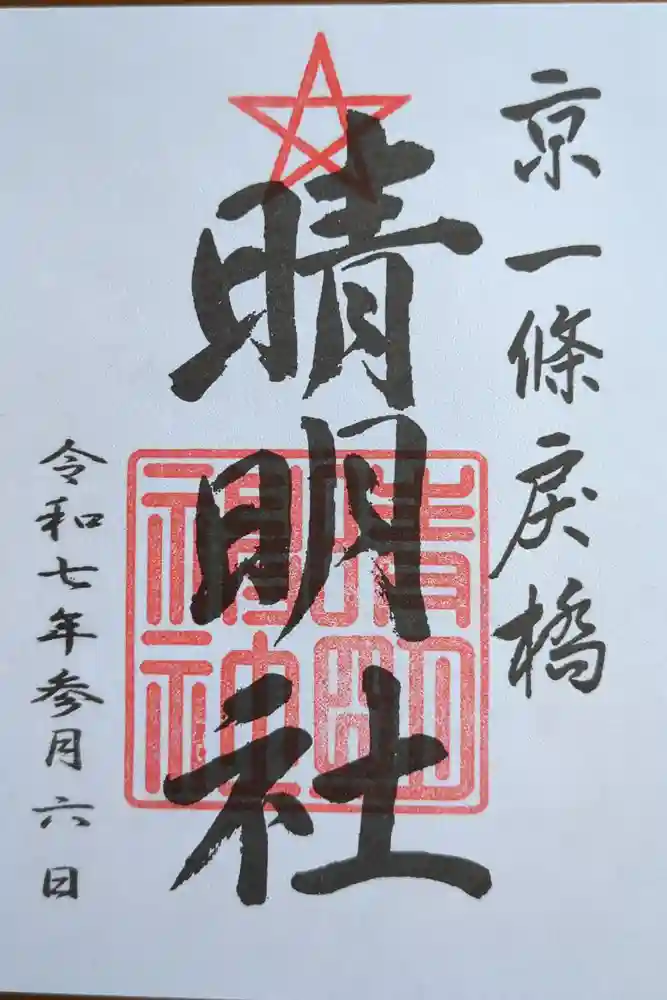 京一條戻橋
晴明社
晴明神社
令和七年参月六日